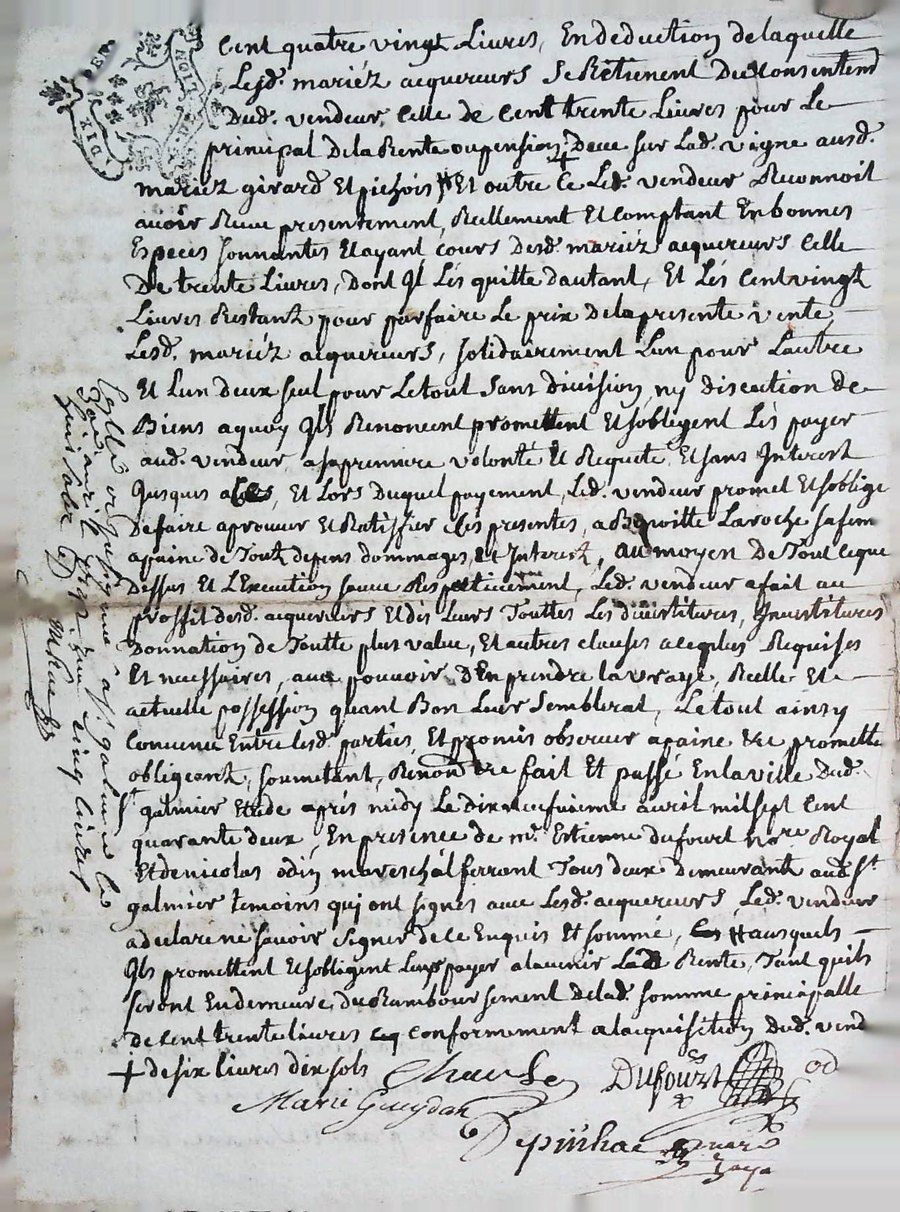 Cent quatre vingt Livres, En deduction de laquelle
Lesd. mariéz acquereurs Se Retienent Du Consentem
Dud. vendeur Celle de Cent trente Livres pour Le
principal De la Rente ou pension + Deue sur Lad. vigne ausd.
mariéz girard Et pichois # Et outre Ce Led. vendeur Reconnoit
avoir Receu presentement, Reellement Et Comptant En bonnes
Especes sonnantes Et ayant cours Desd. mariéz acquereurs Celle
De trente Livres, Dont Il Les quitte d'autant, Et Les Cent vingt
Livres Restant pour parfaire Le prix De la presente vente,
Lesd. mariéz acquereurs, solidairement L'un pour L'autre
Et L'un deux seul pour Le tout Sans division, ny discution de
Biens a quoy Ils Renoncent promettent Et s'obligent Les payer
aud. vendeur, a sa premiere volonté Et Requete, Et sans Interest
Jusques a, Et Lors Duquel payement, Led. vendeur promet Et s'oblige
De faire aprouver Et Ratiffier Ces presentes, a Benoitte Laroche sa fem
a paine de Tout depens dommages, et Interest, au moyen De Tout Ceque
Dessus Et L'Execution sauve Respectivement, Led. vendeur a fait au
proffit desd. acquereurs Et des Leurs Touttes Les divistitures, Invistitures
Donnation de Toutte plus value, Et autres clauses a ce plus Requises
Et necessaires, avec pouvoir D'En prendre la vraye, Reelle Et
actuelle possession quant Bon Leur Semblerat, Le tout ainsy
Convenu Entre lesd. parties, Et promis observer a paine &c promette
obligeant, soumetant, Renon &c fait Et passé En la ville Dud.
St galmier Etude aprés midy Le dix neufvieme avril mil sept Cent
quarante deux, En presence de mr. Estienne dufourt nore Royal
Et de nicolas odin mareschal ferrant Tous deux demeurant aud. St
galmier temoins qui ont signés avec Lesd. acquereurs, Led. vendeur
a declaré ne savoir signer de ce Enquis Et sommé, # ausquels
Ils promettent Et s'obligent Leurs payer a l'avenir Lade Rente, Tant quils
seront En demeure, Du Ramboursement delad. somme principalle
de Cent trente livres conformement a l'acquisition Dud. vend
+ de six livres dix sols
Marie Gueydan
DuFourt
od
Depiнhac
Controllé a St galmier le
avril 1742 Reçu cinq livres